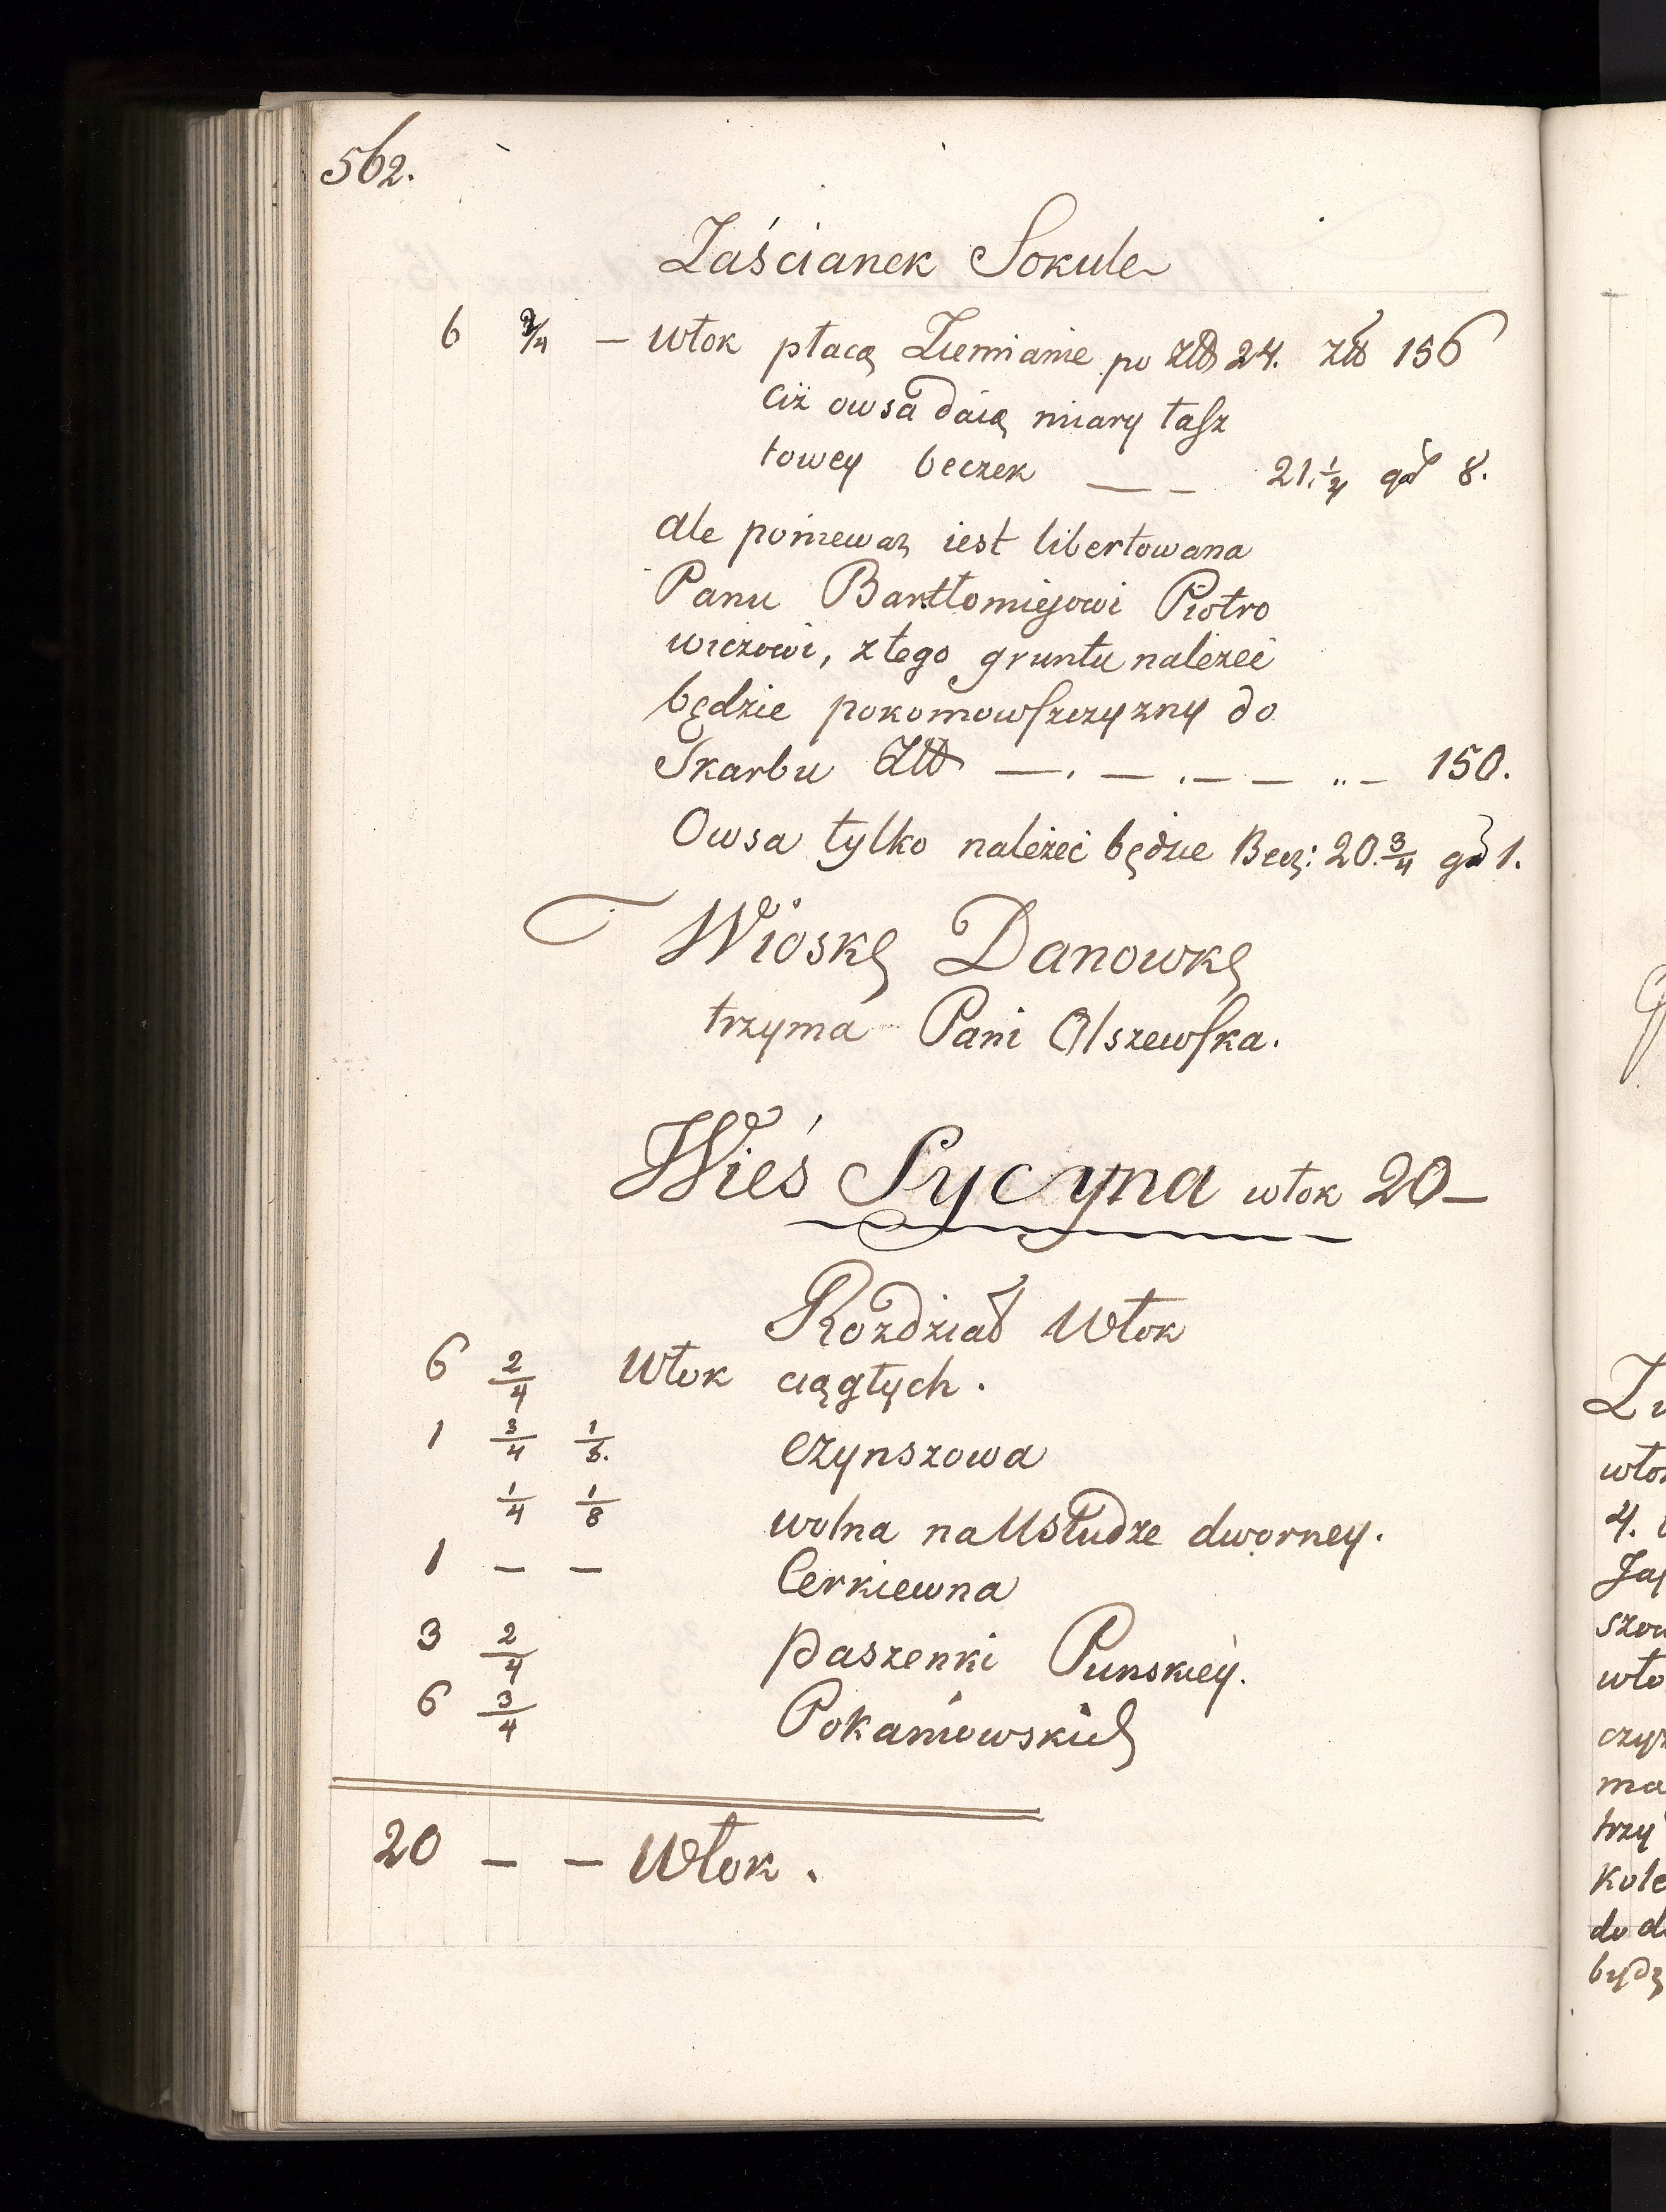 562.
Zaścianek Sokule
6 2/4 — włok płacą Ziemianie po Złł 24. złł 156
Ciż owsa daią miary łaſz
towey beczek — — 21.1/4 gar 8.
ale poniewaz iest libertowana
Panu Bartłomiejowi Piotro
wiczowi, z tego gruntu należeć
będzie pokomowſzczyzny do
Skarbu Złł —. — .— — „— 150.
Owsa tylko należeć będzie Becz: 20.3/4 gar 1.
Wioskę Danowkę
trzyma Pani Olszewſka.
Wieś Sycyna włok 20—
Rozdział Włok
6 2/4 Włok ciągłych.
1 3/4 1/8. czynszowa
1/4 1/8 wolna na Usłudze dworney.
1 — — Cerkiewna
3 2/4 paszenki Punskiey.
6 3/4 Pokaniowskich
20 — — Włok.
Zi
wło
4.
Jaſ
szow
wło
czyn
ma
trzy
Kole
do d
będz